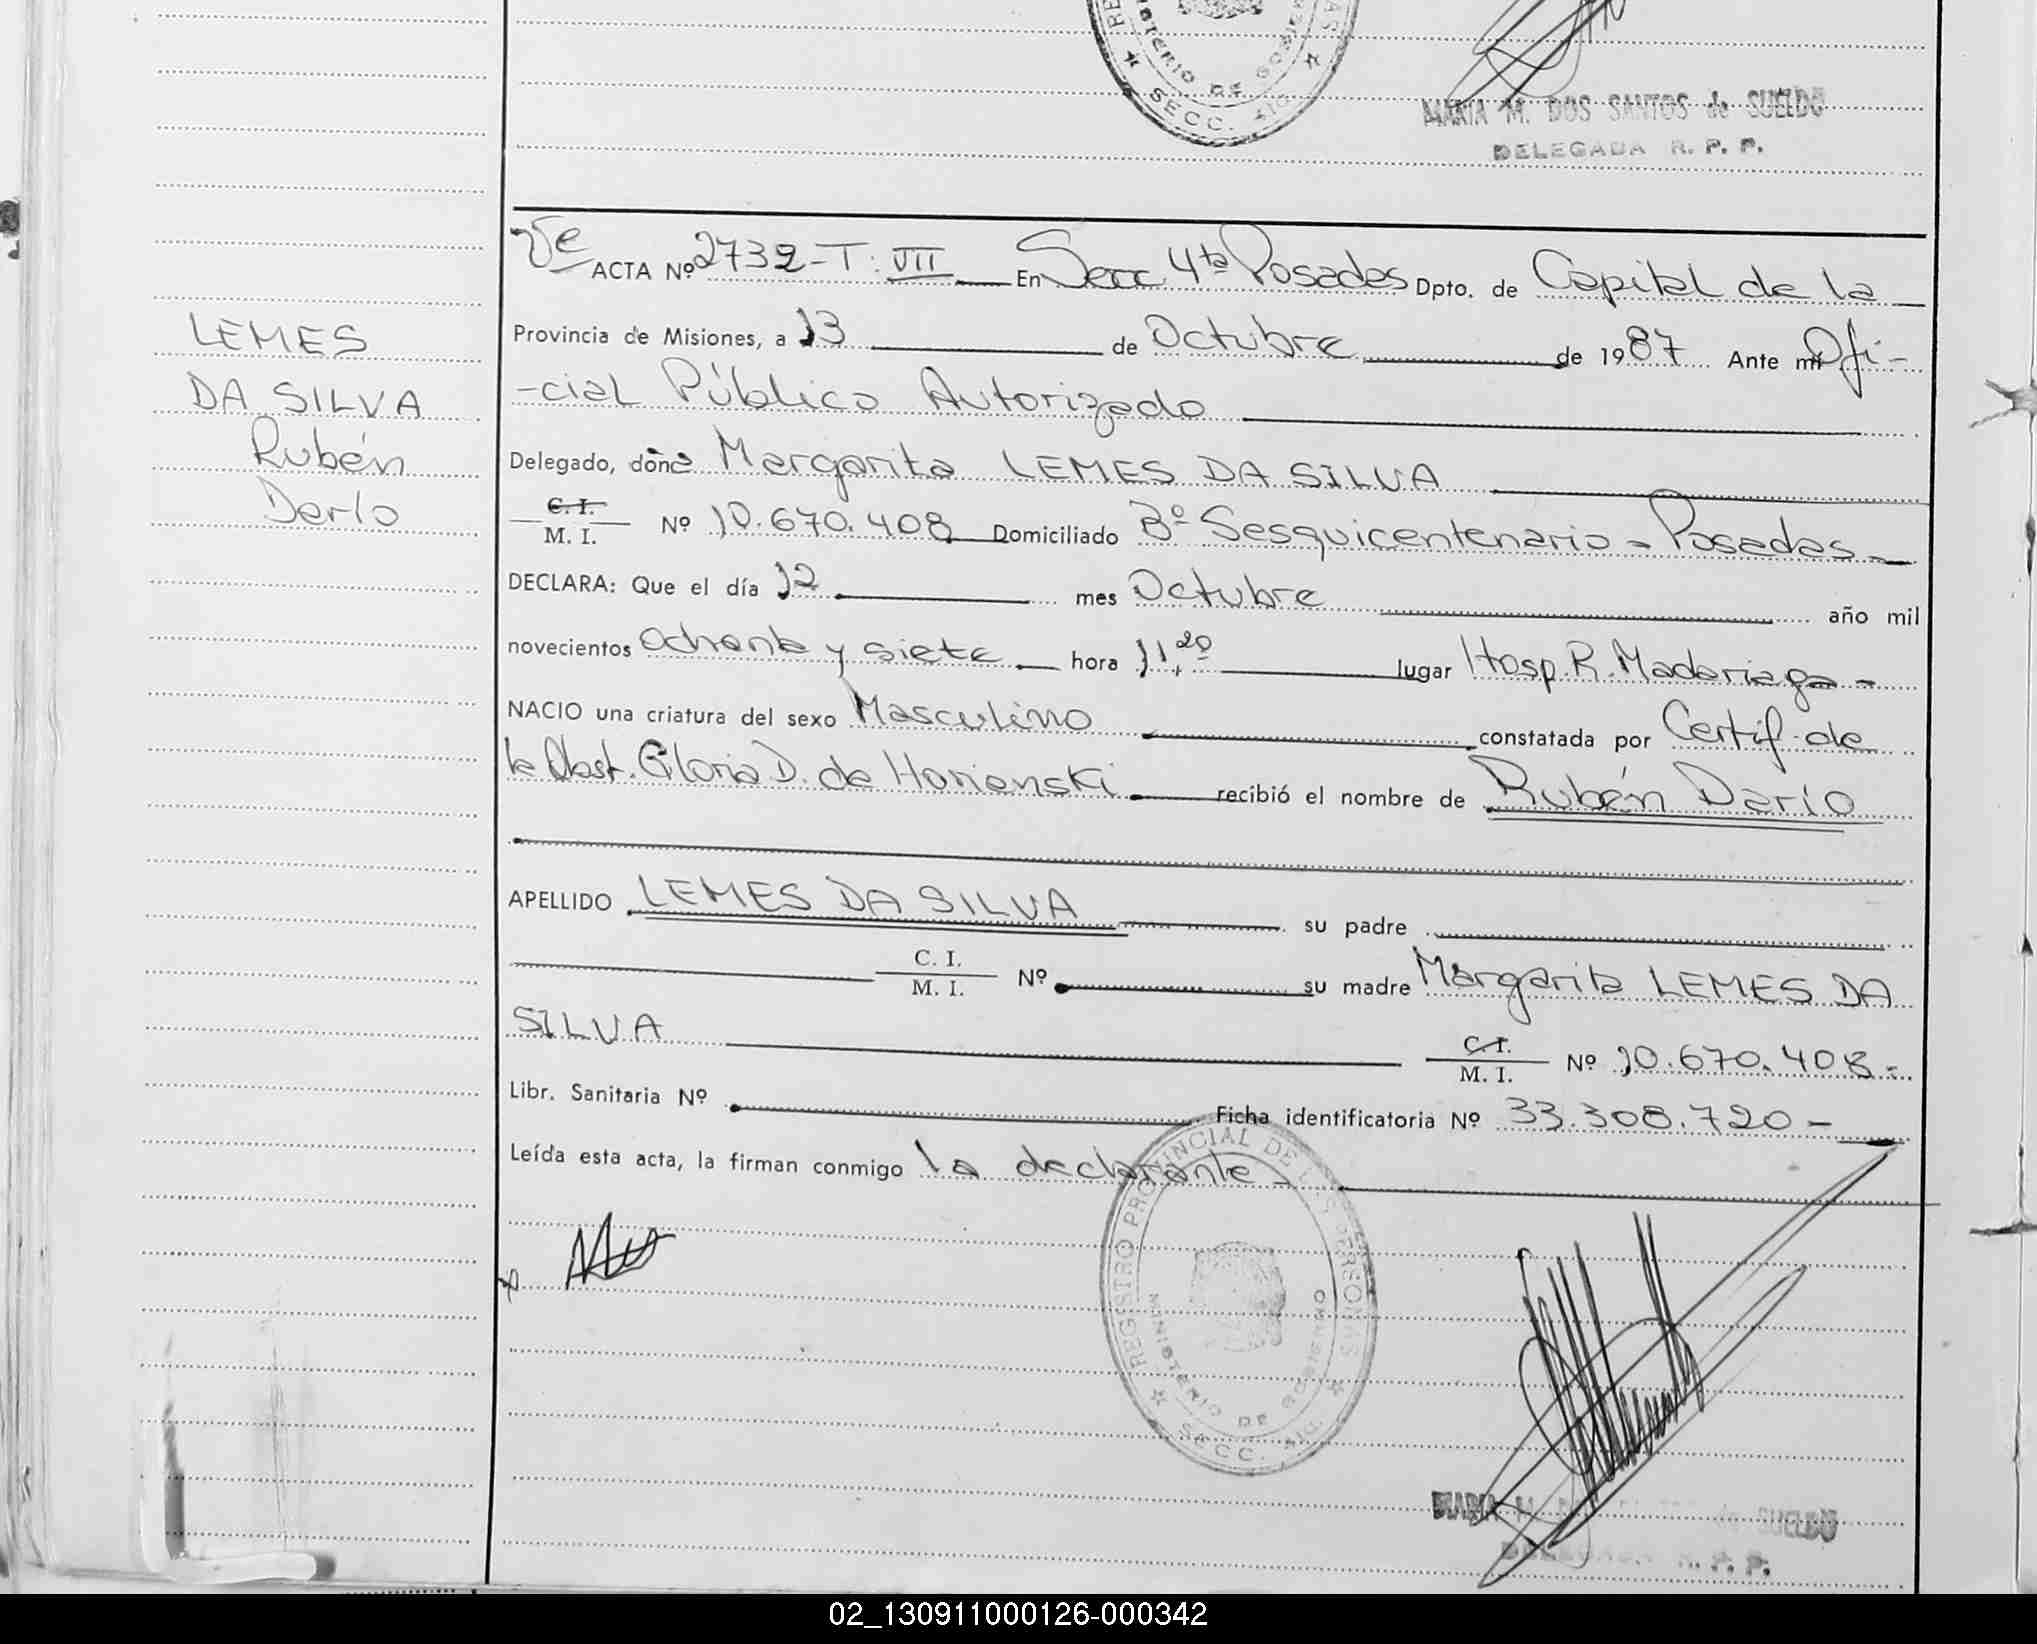 REGISTRO PROVINCIAL DE LAS PERSONAS
MINISTERIO DE GOBIERNO
SECC. 4ta
MARIA M. DOS SANTOS de SUELDO
DELEGADA R. P. P.
LEMES
DA SILVA
Rubén
Darío
ACTA Nº 2732-T. VII En Secc 4ta Posadas Dpto. de Capital de la
Provincia de Misiones, a 13 de Octubre de 1987 Ante mí Ofi-
-cial Público Autorizado
Delegado, doña Margarita LEMES DA SILVA
C. I.
M. I. Nº 10.670.408 Domiciliado Bº Sesquicentenario - Posadas -
DECLARA: Que el día 12 mes Octubre año mil
novecientos ochenta y siete hora 11,20 lugar Hosp. R. Madariaga -
NACIO una criatura del sexo Masculino constatada por Certif. de
la Obst. Gloria D. de recibió el nombre de Rubén Darío
APELLIDO LEMES DA SILVA su padre
C. I.
M. I. Nº su madre Margarita LEMES DA
SILVA C. I.
M. I. Nº 10.670.408-
Libr. Sanitaria Nº Ficha identificatoria Nº 33.308.720-
Leída esta acta, la firman conmigo la declarante -
REGISTRO PROVINCIAL DE LAS PERSONAS
MINISTERIO DE GOBIERNO
SECC. 4ta
MARIA M. de SUELDO
R. P. P.
02_130911000126-000342